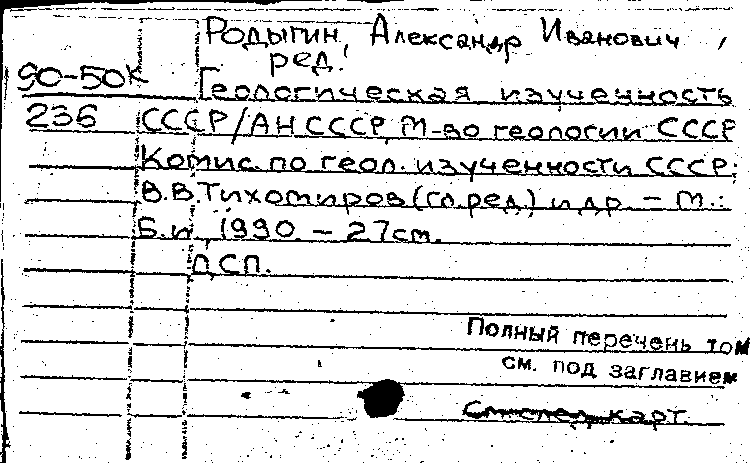 Родыгин, Александр Иванович,
ред.
90-50К Геологическая изученность
236 СССР/АН СССР, М-во геологии СССР
Комис. по геол. изученности СССР;
В.В.Тихомиров (гл.ред.) и др. - М.:
Б.и, 1990. - 27см.
ДСП.
Полный перечень том
см. под заглавием
См. след. карт.